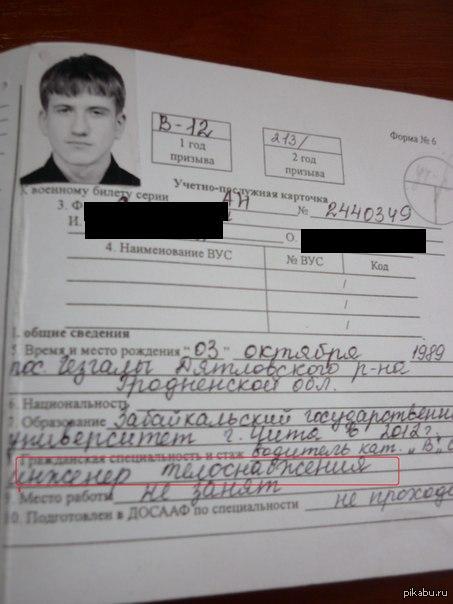 В-12
1 год
призыва
213/
2 год
призыва
Форма № 6
К военному билету серии АН № 2440349
Учетно-послужная карточка
3. Ф
И. О.
4. Наименование ВУС № ВУС Код
/
/
/
1. общие сведения
5. Время и место рождения "03" октября 1989
пос. Гезгалы Дятловского р-на
Гродненской обл.
6. Национальность
7. Образование Забайкальский государственн
университет г. Чита в 2012г.
Гражданская специальность и стаж водитель кат. „В, С
инженер телоснабжения
9. Место работы не занят
10. Подготовлен в ДОСААФ по специальности не проходи
pikabu.ru